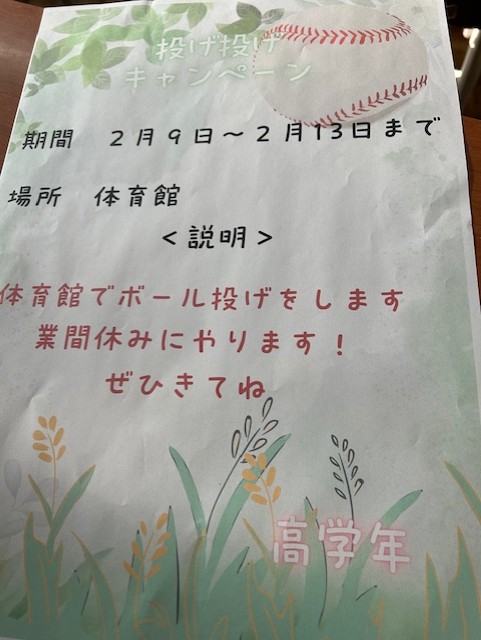 投げ投げ
キャンペーン
期間　２月９日～２月13日まで
場所　体育館
＜説明＞
体育館でボール投げをします
業間休みにやります！
ぜひきてね
高学年